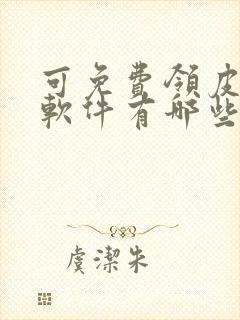 可免費領皮
軟件有哪些
虞潔朱